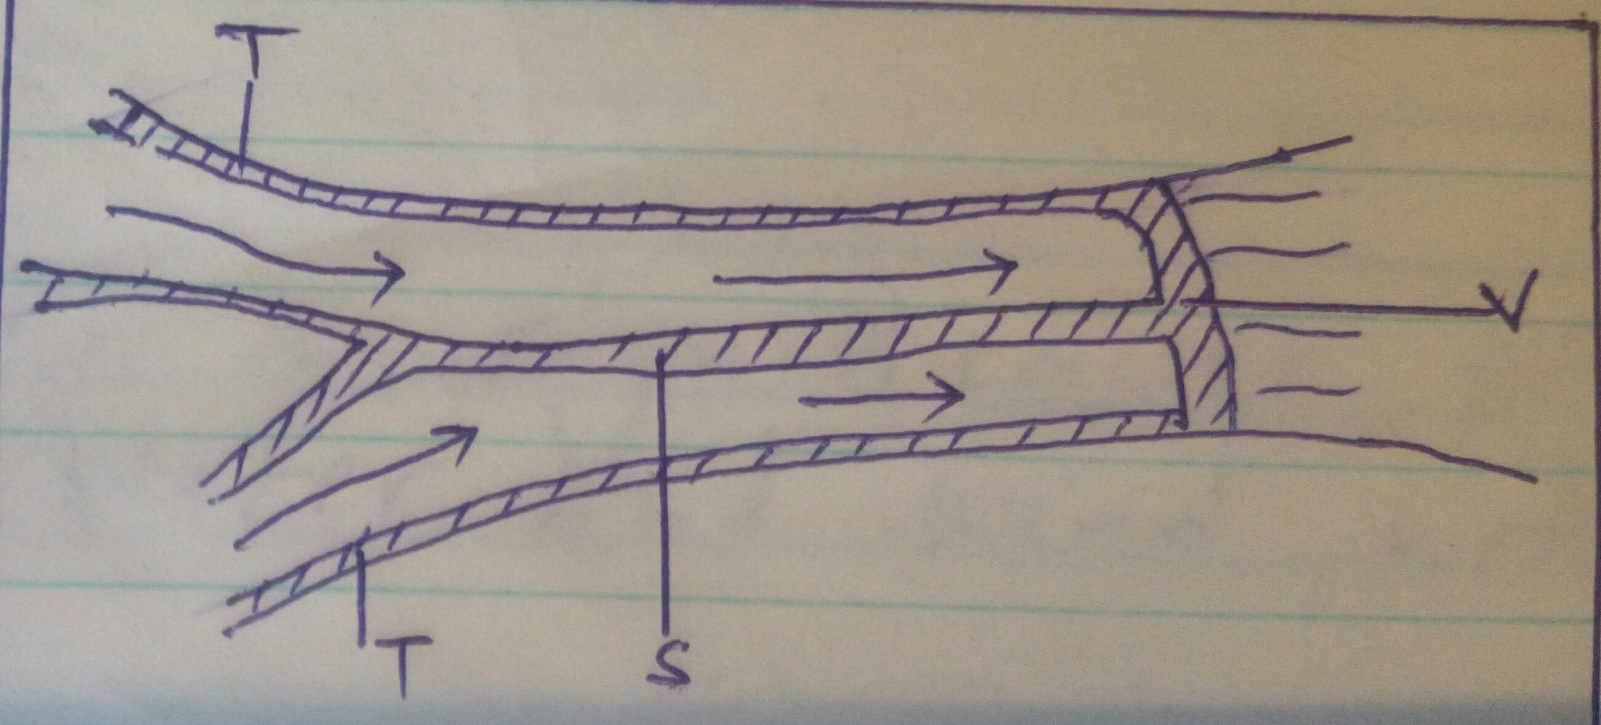 T
V
T
S